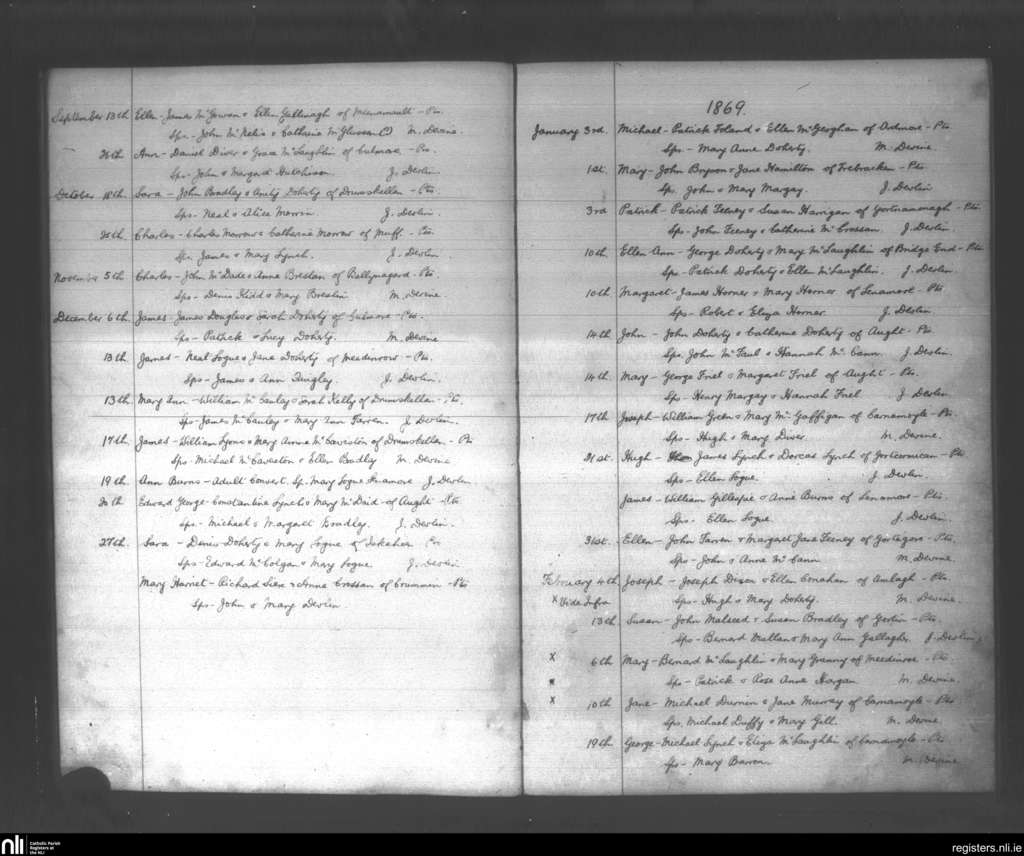 September 13th Ellen - James McGowan & Ellen Gallinagh of - Pts
Sps - John & Catherine M. Devine
26th Ann - Daniel Diver & Grace McLaughlin of Culmore - Pts.
Sps - John & Margaret Hutchison. J. Devlin.
October 18th Sara - John Bradley & Doherty of Drumskellan - Pts.
Sps - Neal & Alice Morrin. J. Devlin.
25th Charles - Charles Morrow & Catherine Morrow of Muff - Pts
Sps. James & Mary Lynch. J. Devlin.
November 5th Charles - John McDade & Anne Breslan of Ballynagard - Pts.
Sps - Denis Kidd & Mary Breslin M. Devine.
December 6th James - James Douglas & Sarah Doherty of Culmore - Pts.
Sps - Patrick & Lucy Doherty. M. Devine
13th James - Neal Logue & Jane Doherty of - Pts.
Sps - James & Ann Quigley. J. Devlin.
13th Mary Ann - William McCauley & Sarah Kelly of Drumskellan - Pts.
Sps - James McCauley & Mary Ann Farren. J. Devlin.
17th James - William Lyons & Mary Annie of Drumskellan - Pts
Sps - Michael & Ellen Bradley M. Devine
19th Ann Burns - Adult Convert. Sp. Mary Logue J. Devlin.
20th Edward George - Constantine Lynch & Mary McDaid of Aught - Pts
Sps - Michael & Margaret Bradley. J. Devlin.
27th. Sara - Denis Doherty & Mary Logue of Iskaheen Pts
Sps - Edward McColgan & Mary Logue. J. Devlin
Mary Harriet - Richard & Anne Crossan of Crummin - Pts
Sps - John & Mary Devlin
1869.
January 3rd. Michael - Patrick Toland & Ellen McGeoghan of Ardmore - Pts
Sps - Mary Anne Doherty. M. Devine.
1st. Mary - John Bryson & Jane Hamilton of Trebracken - Pts
Sps. John & Mary Margay. J. Devlin
3rd Patrick - Patrick Feeney & Susan Harrigan of - Pts
Sps - John Feeney & Catherine McCrossan. J. Devlin.
10th. Ellen Ann - George Doherty & Mary McLaughlin of Bridge End - Pts
Sps - Patrick Doherty & Ellen McLaughlin. J. Devlin.
10th. Margaret - James Horner & Mary Horner of Lenamore - Pts
Sps - Robert & Eliza Horner J. Devlin
14th John - John Doherty & Catherine Doherty of Aught - Pts
Sps. John McFaul & Hannah McCann. J. Devlin.
14th. Mary - George Friel & Margaret Friel of Aught - Pts.
Sps - Henry Margay & Hannah Friel J Devlin
17th Joseph - William Green & Mary McGaffigan of Carnamoyle - Pts
Sps - Hugh & Mary Diver M. Devine.
21st. Hugh - James Lynch & Dorcas Lynch of Gortcormican - Pts
Sps - Ellen Logue. J Devlin.
James - William Gillespie & Anne Burns of Lenamore - Pts.
Sps. Ellen Logue J. Devlin.
31st. Ellen - John Farren & Margaret Jane Feeney of - Pts.
Sps - John & Anne McCann M. Devine.
February 4th Joseph - Joseph Dixon & Ellen Conahan of Amlagh - Pts
x Vide Infra Sps - Hugh & Mary Doherty. M. Devine.
13th Susan - John Malseed & Susan Bradley of - Pts.
Sps - Bernard & Mary Ann Gallagher J. Devlin
x 6th Mary - Bernard McLaughlin & Mary Granny of - Pts.
x Sps - Patrick & Rose Anne Horgan M. Devine.
x 10th Jane - Michael Durnin & Jane Murray of Carnamoyle - Pts
Sps. Michael Duffy & Mary Gill. M. Devine
19th George - Michael Lynch & Eliza McLaughlin of Carnamoyle - Pts
Sps - Mary Barron. M. Devine
nli Catholic Parish Registers at the NLI
registers.nli.ie